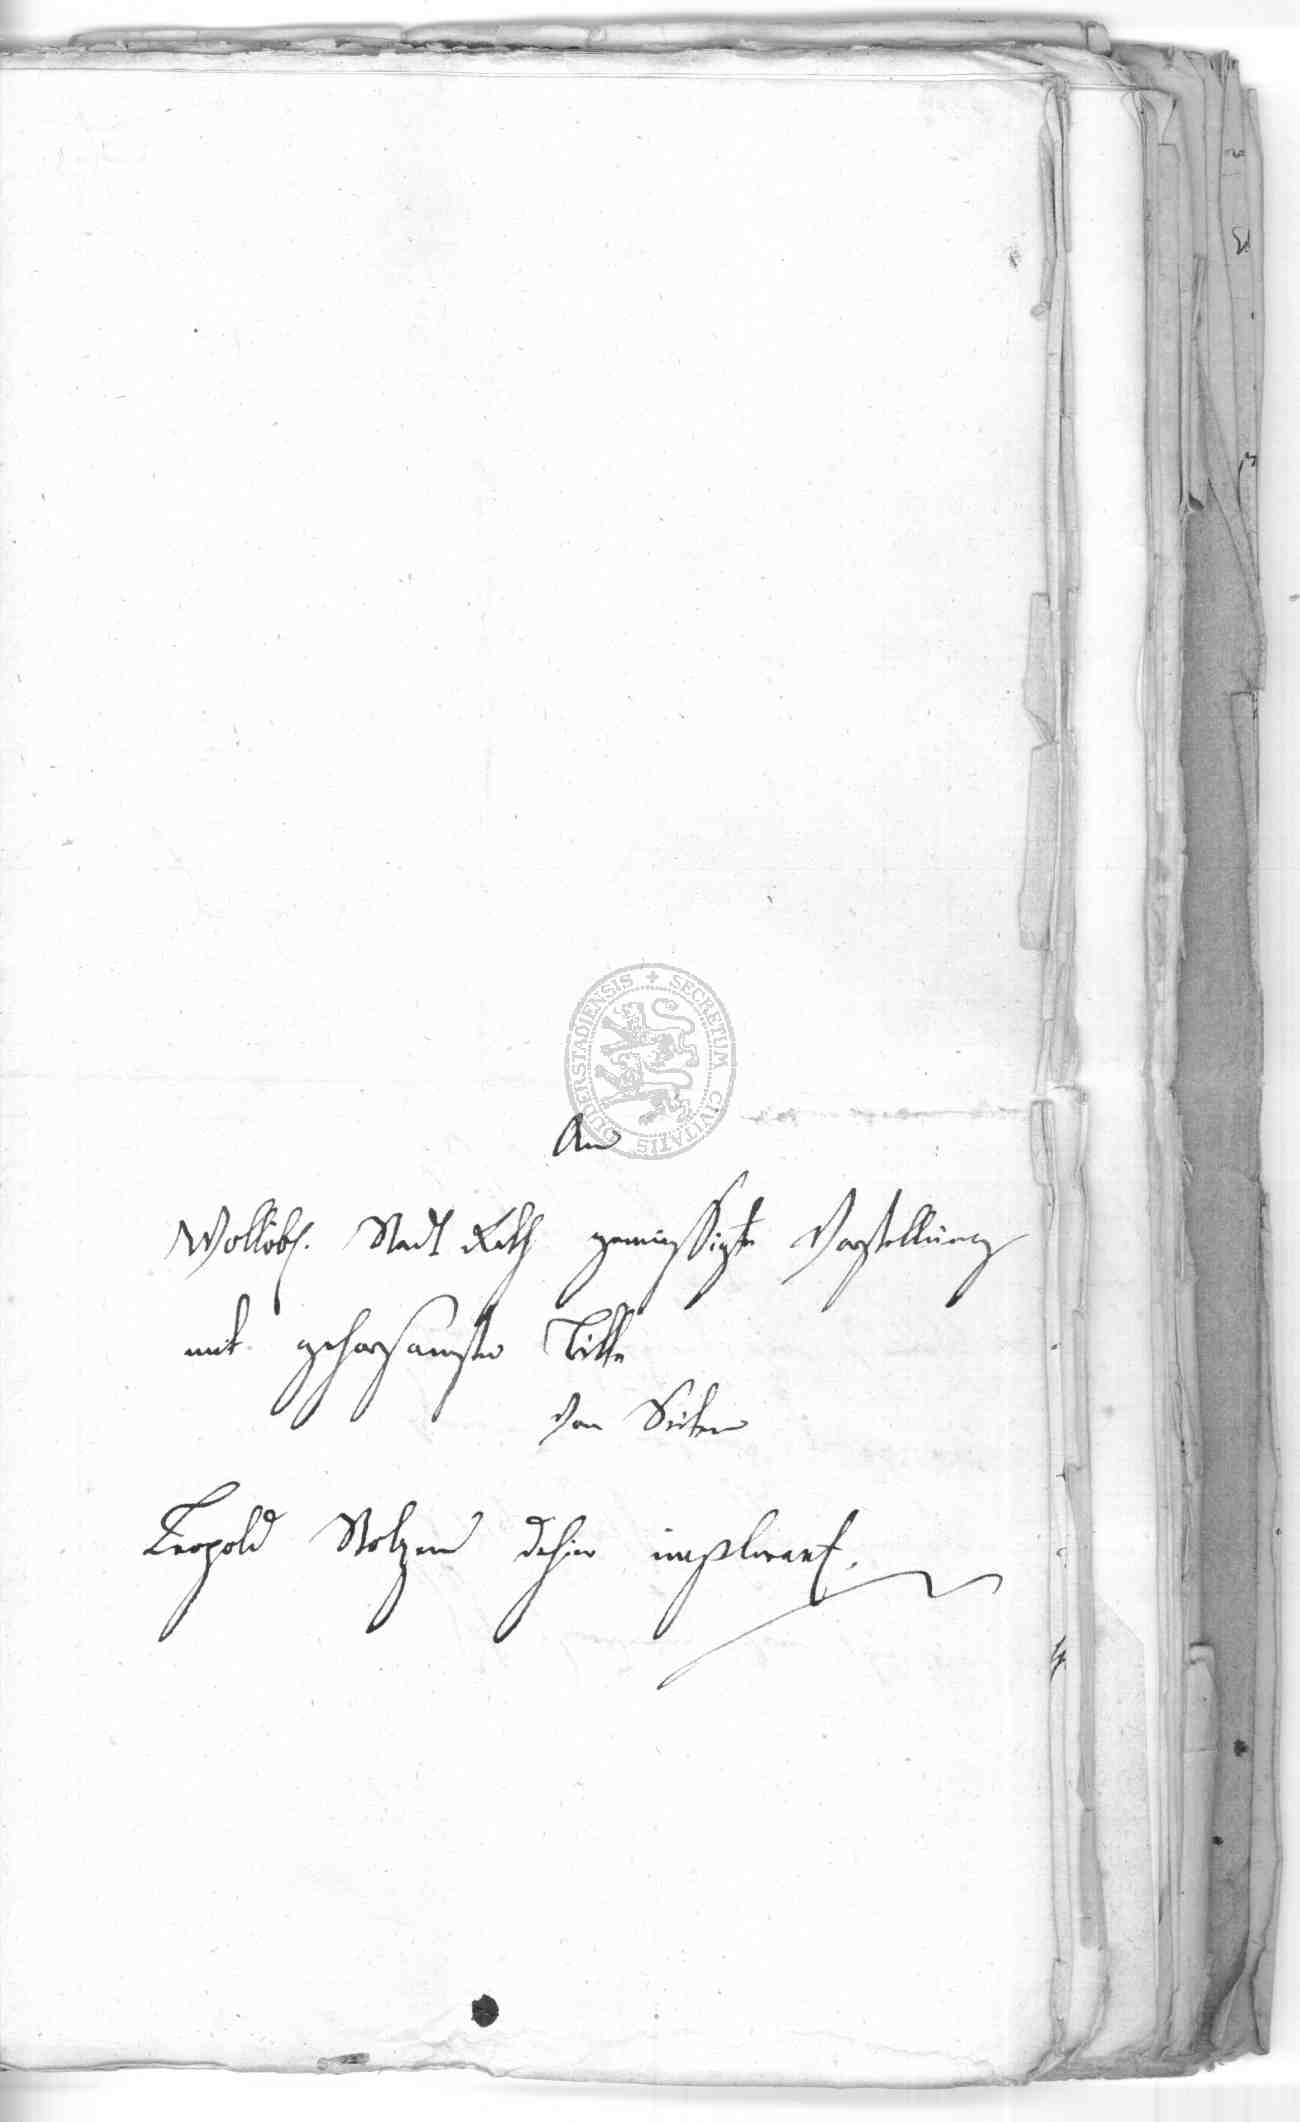 SECRETUM CIVITATIS DUDERSTADIENSIS
An
Wollöbl. Stadt Rath gemüssigte Vorstellung
mit gehorsamster Bitte
von Seiten
Leopold Stolzen dahier implorant.